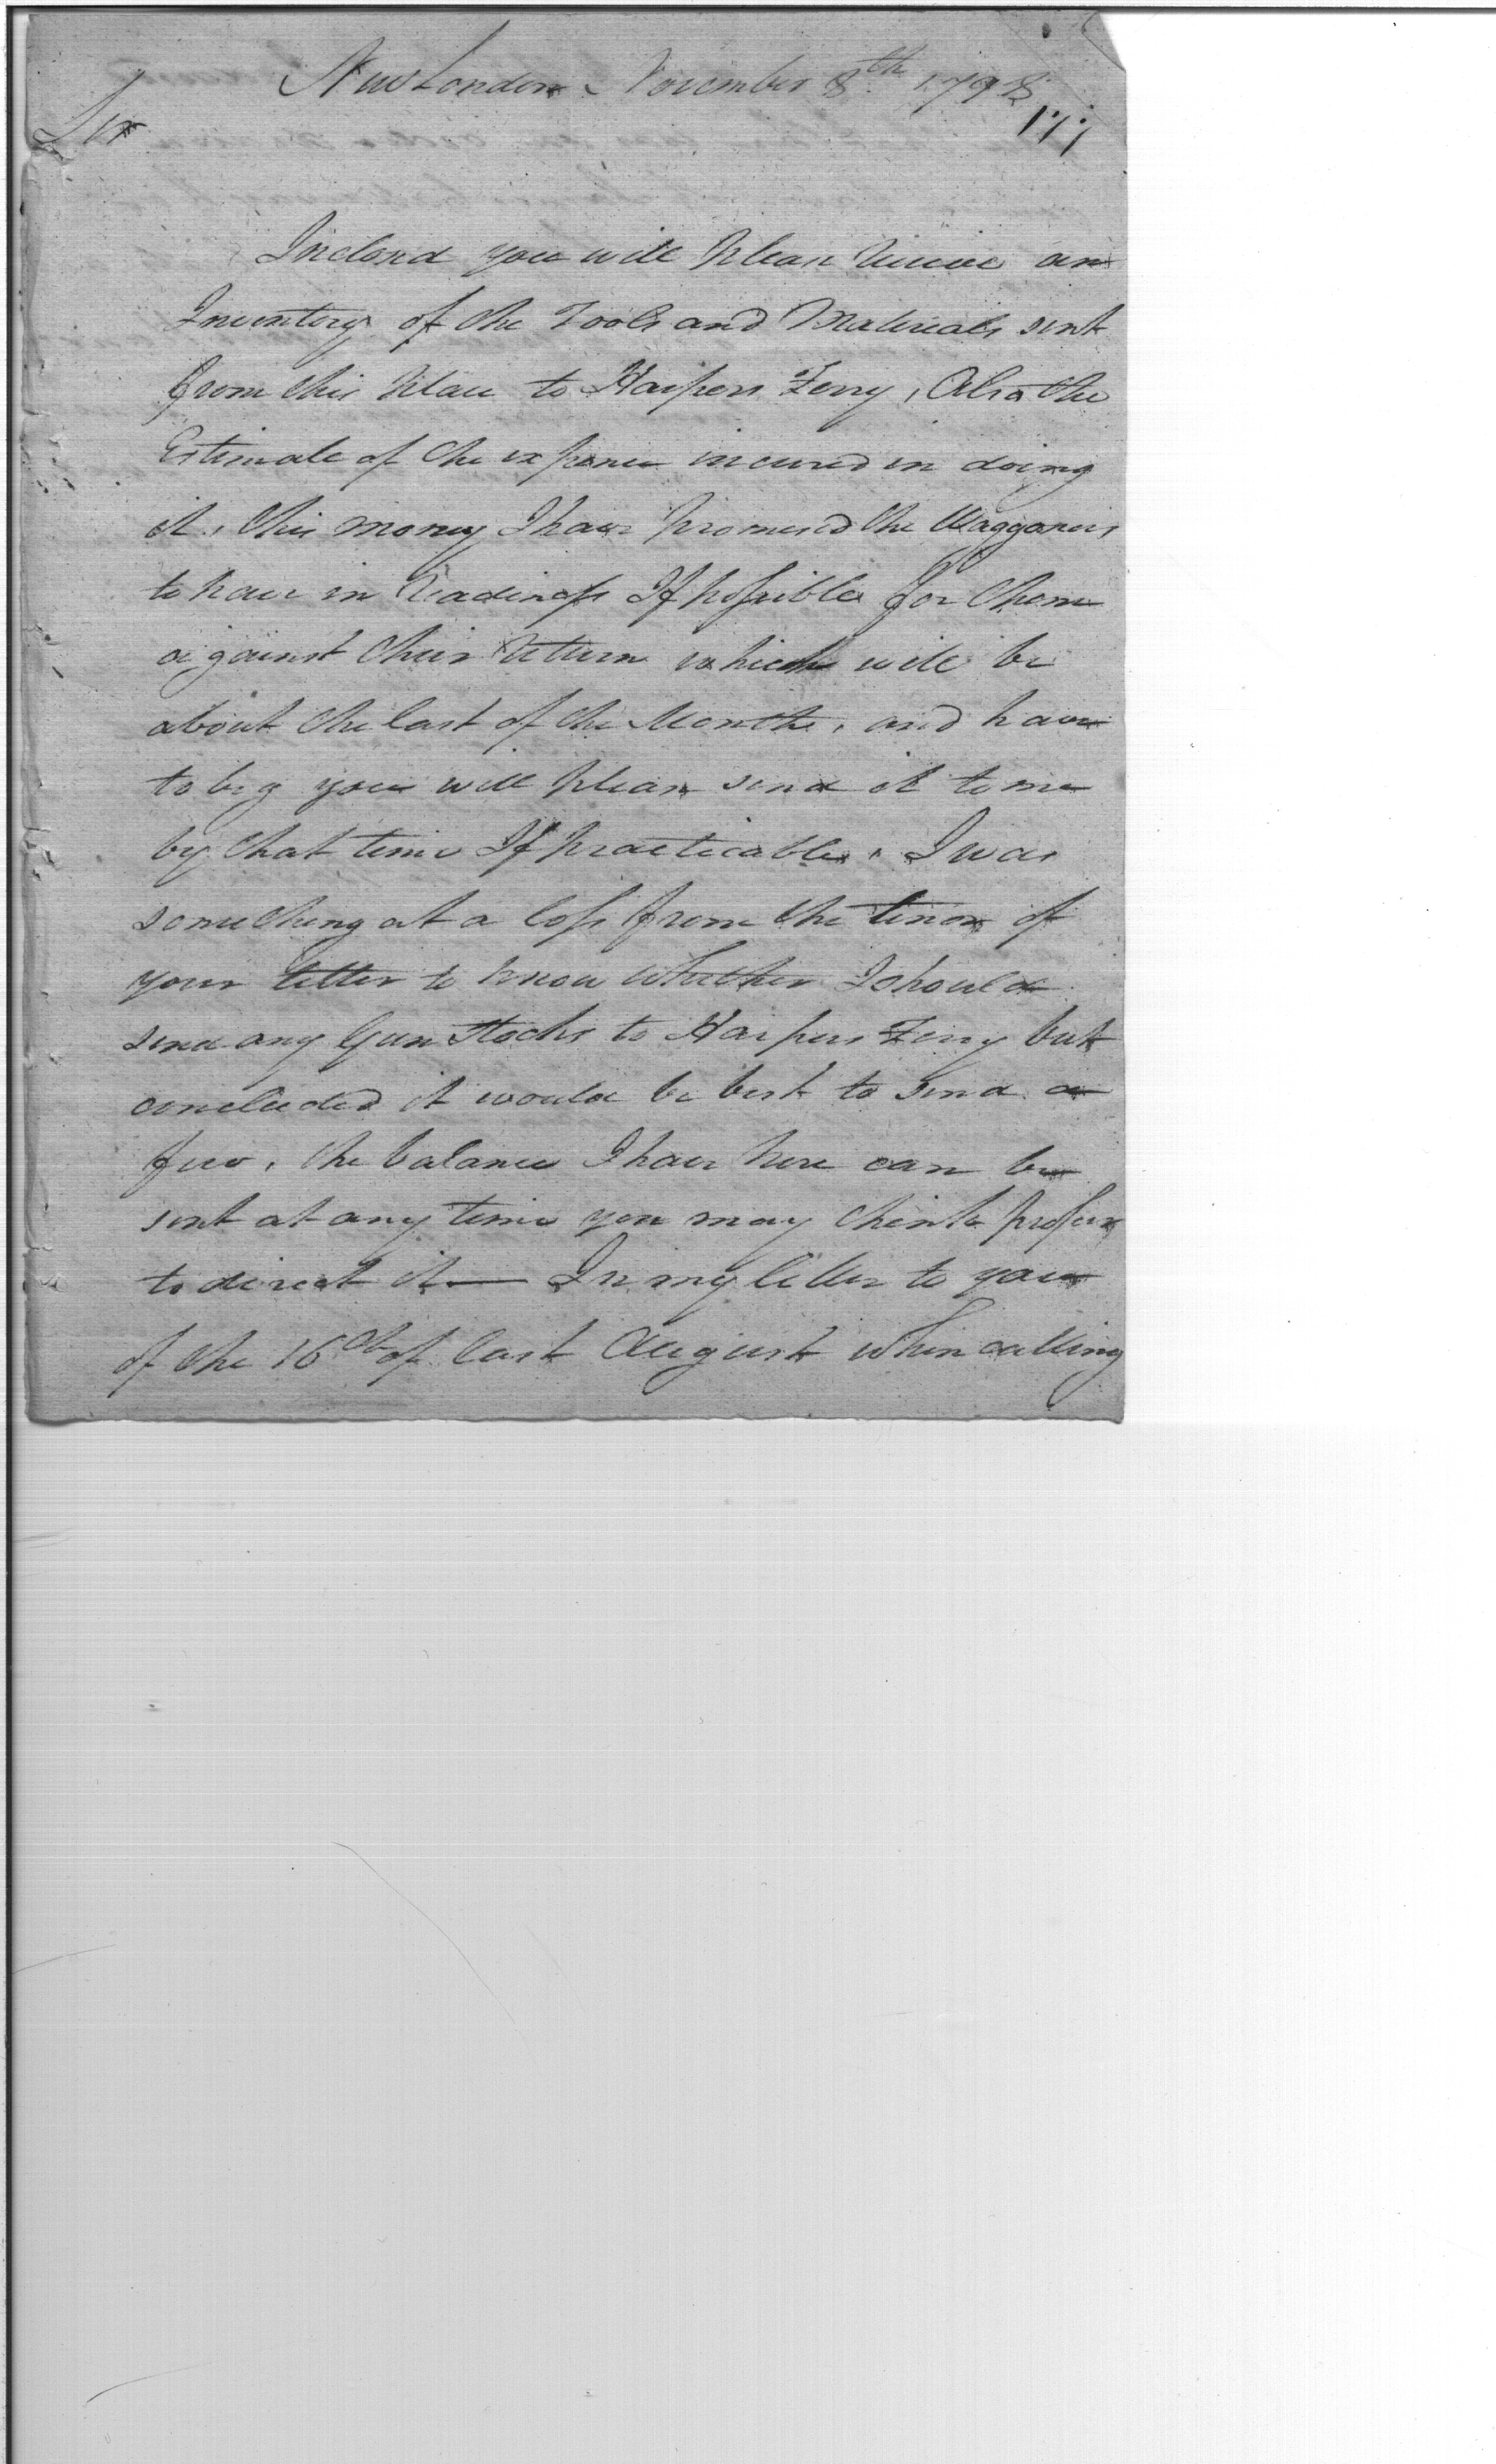 New London November 8th 1798
Sir
Inclosed you will please receive an
Inventory of the Tools and Materials sent
from this place to Harpers Ferry, Also the
Estimate of the expence incured in doing
it, this money I have promised the Waggoners
to have in readiness If possible for them
against their return which will be
about the last of the Month, and have
to beg you will please send it to me
by that time If practicable. I was
something at a loss from the tenor of
your letter to know whether I should
send any Gun Stocks to Harpers Ferry but
concluded it would be best to send a
few, the balance I have here can be
sent at any time you may think proper
to direct it — In my letter to you
of the 16th of last August when calling